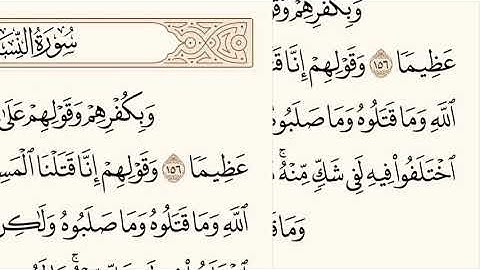 وَبِكُفْرِهِمْ
عَظِيمًا ١٥٦ وَقَوْلِهِمْ إِنَّا
ٱللَّهِ وَمَا قَتَلُوهُ وَمَا صَلَبُوهُ
ٱخْتَلَفُوا۟ فِيهِ لَفِى شَكٍّ مِّنْهُ ۚ
وَمَا
سُورَةُ
وَبِكُفْرِهِمْ وَقَوْلِهِمْ عَلَىٰ
عَظِيمًا ١٥٦ وَقَوْلِهِمْ إِنَّا قَتَلْنَا
ٱللَّهِ وَمَا قَتَلُوهُ وَمَا صَلَبُوهُ